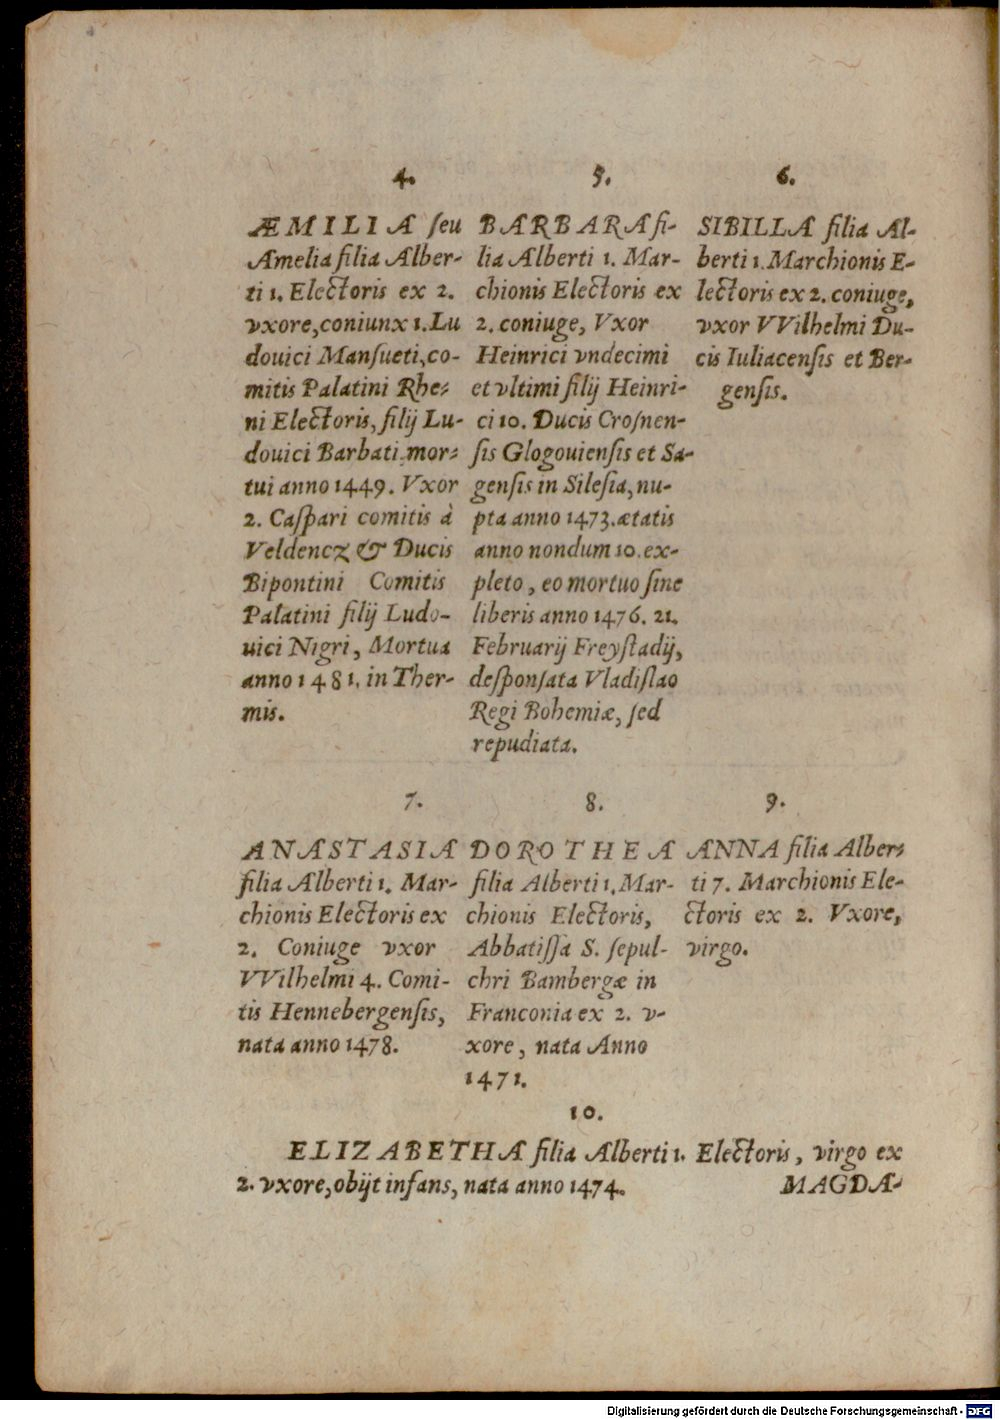 4.
ÆMILIA seu
Amelia filia Alber-
ti 1. Electoris ex 2.
vxore, coniunx 1. Lu
douici Mansueti, co-
mitis Palatini Rhe-
ni Electoris, filij Lu-
douici Barbati, mor-
tui anno 1449. Vxor
2. Caspari comitis à
Veldencz & Ducis
Bipontini Comitis
Palatini filij Ludo-
uici Nigri, Mortua
anno 1481. in Ther-
mis.
5.
BARBARA fi-
lia Alberti 1. Mar-
chionis Electoris ex
2. coniuge, Vxor
Heinrici vndecimi
et vltimi filij Heinri-
ci 10. Ducis Crosnen-
sis Glogouiensis et Sa-
gensis in Silesia, nu-
pta anno 1473. ætatis
anno nondum 10. ex-
pleto, eo mortuo sine
liberis anno 1476. 21.
Februarij Freystadij,
desponsata Vladislao
Regi Bohemiæ, sed
repudiata.
6.
SIBILLA filia Al-
berti 1. Marchionis E-
lectoris ex 2. coniuge,
vxor VVilhelmi Du-
cis Iuliacensis et Ber-
gensis.
7.
ANASTASIA
filia Alberti 1. Mar-
chionis Electoris ex
2. Coniuge vxor
VVilhelmi 4. Comi-
tis Hennebergensis,
nata anno 1478.
8.
DOROTHEA
filia Alberti 1. Mar-
chionis Electoris,
Abbatissa S. sepul-
chri Bambergæ in
Franconia ex 2. v-
xore, nata Anno
1471.
9.
ANNA filia Alber-
ti 7. Marchionis Ele-
ctoris ex 2. Vxore,
virgo.
10.
ELIZABETHA filia Alberti 1. Electoris, virgo ex
2. vxore, obijt infans, nata anno 1474.
MAGDA-
Digitalisierung gefördert durch die Deutsche Forschungsgemeinschaft - DFG